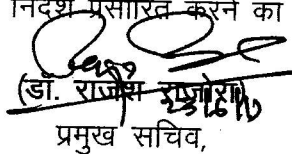 निर्देश प्रसारित करने का
(डॉ. राजेश राजोरा)
प्रमुख सचिव,